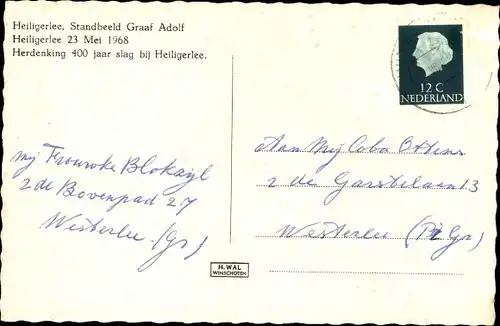 Heiligerlee. Standbeeld Graaf Adolf
Heiligerlee 23 Mei 1968
Herdenking 400 jaar slag bij Heiligerlee.
12 C
NEDERLAND
mej Frouwke Blokzijl
2 de Bovenpad 27
Westerlee (Gr)
Aan Mej Coba Ottens
2 de Garstelaan 13
Westerlee (Gr)
H. WAL
WINSCHOTEN